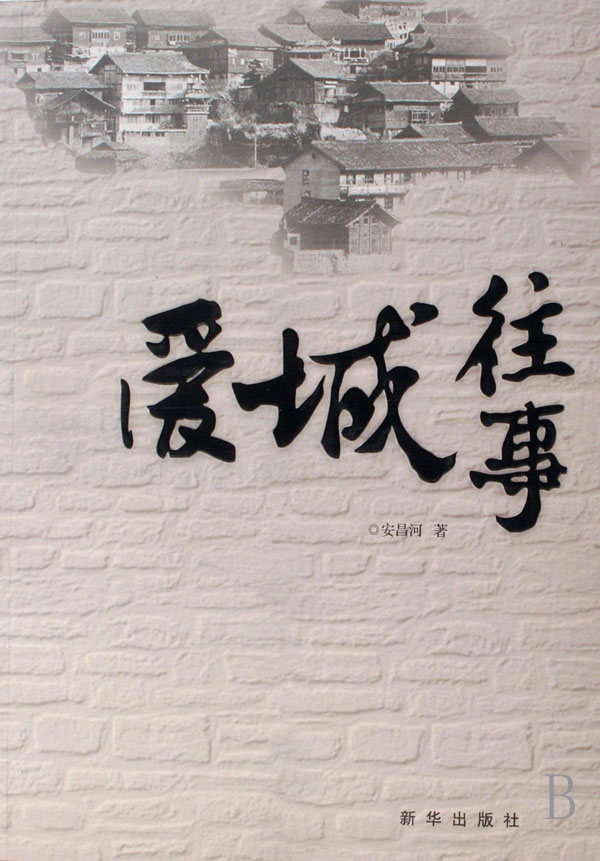 爱城
往事
◎安昌河 著
新华出版社
B